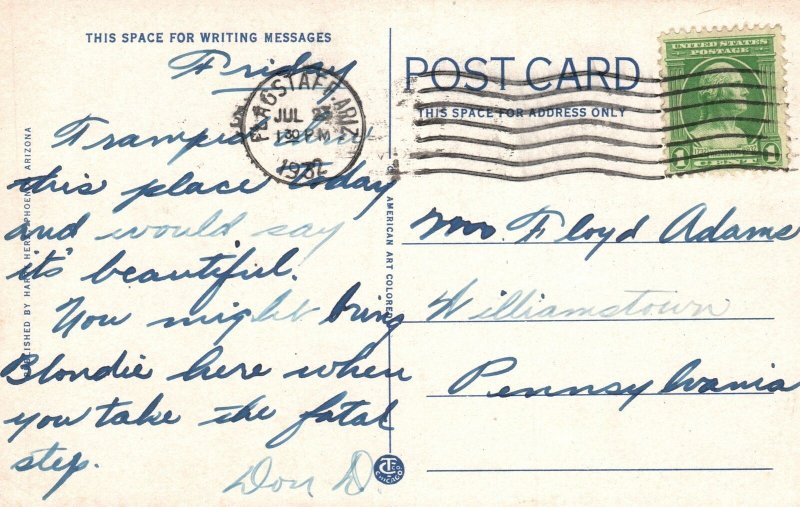 THIS SPACE FOR WRITING MESSAGES
Friday
Tramped
this place today
and would say
it's beautiful.
You might bring
Blondie here when
you take the fatal
step.
Don D
PUBLISHED BY PHOENIX, ARIZONA
AMERICAN ART COLORED
CT CO
CHICAGO
POST CARD
THIS SPACE FOR ADDRESS ONLY
FLAGSTAFF, ARIZ.
JUL
1 30 PM
1932
UNITED STATES
POSTAGE
1 CENT 1
Floyd Adams
Williamstown
Pennsylvania